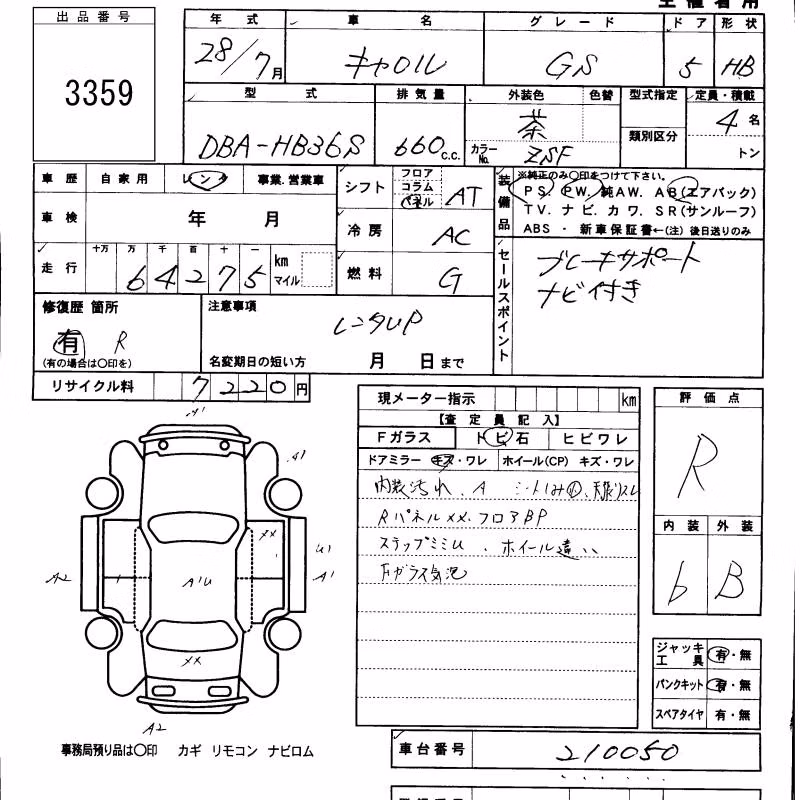 出品番号
3359
年式 車名 グレード ドア 形状
28/7月 キャロル GS 5 HB
型式 排気量 外装色 色替 型式指定 定員・積載
DBA-HB36S 660c.c. 茶 類別区分 4名
カラーNo. ZSF トン
車歴 自家用 レンタ 事業.営業車
シフト フロア コラム パネル AT
装備品
※純正のみ○印をつけて下さい。
PS. PW. 純AW. AB(エアバック)
TV. ナビ. カワ. SR(サンルーフ)
ABS ・ 新車保証書←(注) 後日送りのみ
車検 年 月
冷房 AC
走行 十万 万 千 百 十 一
64275 km マイル
燃料 G
セールスポイント
ブレーキサポート
ナビ付き
修復歴 箇所
有 R
(有の場合は○印を)
注意事項
レンタUP
名変期日の短い方 月 日まで
リサイクル料 7220円
現メーター指示 km
【査定員記入】
Fガラス トビ石 ヒビワレ
ドアミラー キズ・ワレ ホイール(CP) キズ・ワレ
内装汚れ、A シートしみ
Rパネルxx.フロアBP
ステップミミU、ホイール違い
Fガラス気泡
評価点
R
内装 外装
b B
A1
A1
xx
U1
A2 A1U A1
xx
A2
ジャッキ工具 有・無
パンクキット 有・無
スペアタイヤ 有・無
事務局預り品は○印 カギ リモコン ナビロム
車台番号 210050